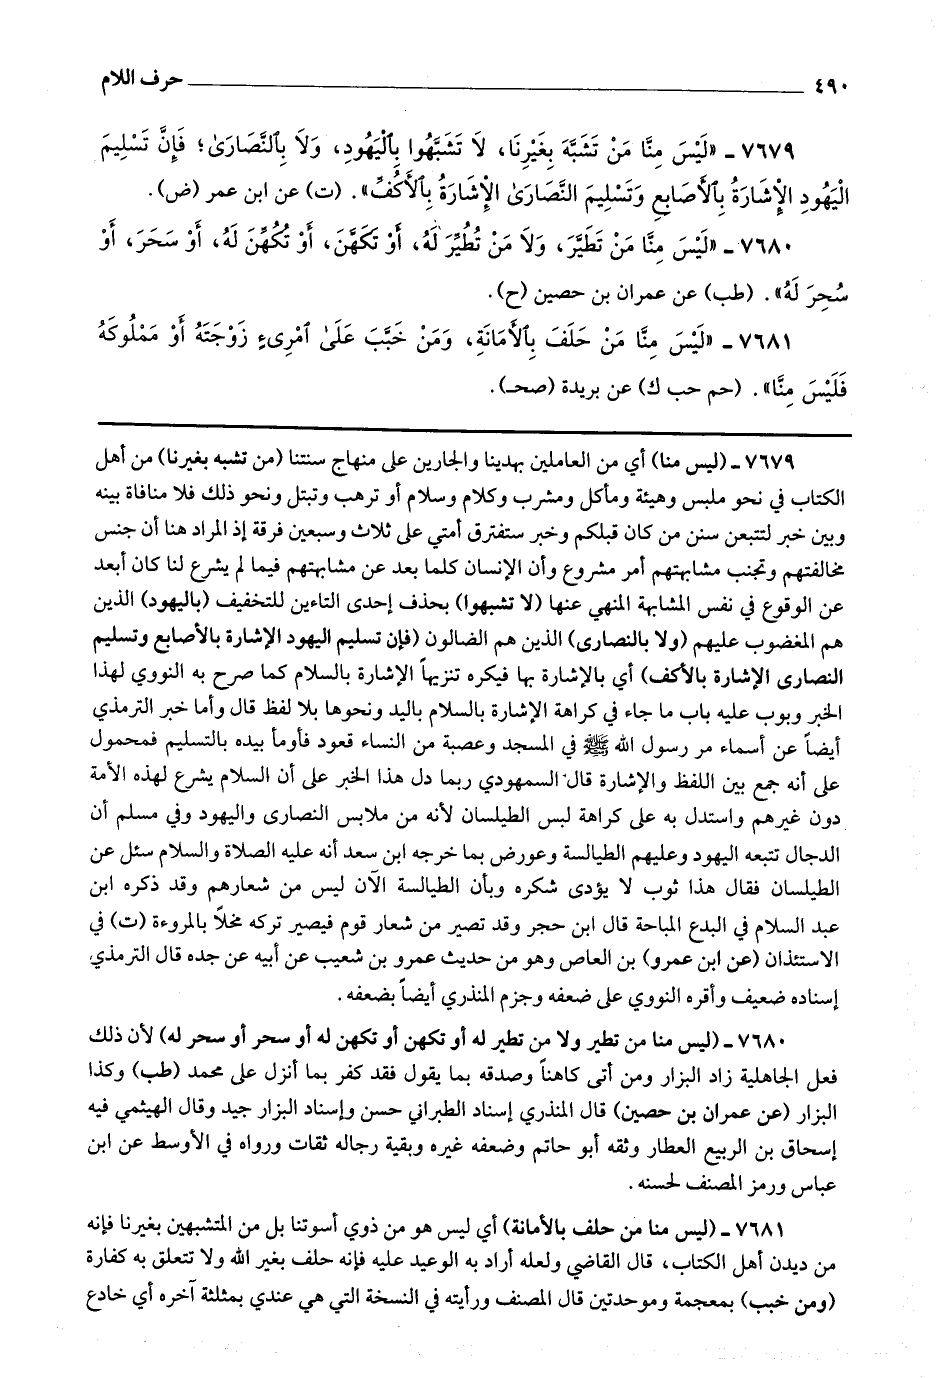 ٤٩٠ حرف اللام
٧٦٧٩ ـ «لَيْسَ مِنَّا مَنْ تَشَبَّهَ بِغَيْرِنَا، لَا تَشَبَّهُوا بِٱلْيَهُودِ، وَلَا بِٱلنَّصَارَىٰ؛ فَإِنَّ تَسْلِيمَ
الْيَهُودِ الْإِشَارَةُ بِٱلْأَصَابِعِ وَتَسْلِيمَ النَّصَارَىٰ الْإِشَارَةُ بِٱلْأَكُفِّ». (ت) عن ابن عمر (ض).
٧٦٨٠ ـ «لَيْسَ مِنَّا مَنْ تَطَيَّرَ، وَلَا مَنْ تُطُيِّرَ لَهُ، أَوْ تَكَهَّنَ، أَوْ تُكُهِّنَ لَهُ، أَوْ سَحَرَ، أَوْ
سُحِرَ لَهُ». (طب) عن عمران بن حصين (ح).
٧٦٨١ ـ «لَيْسَ مِنَّا مَنْ حَلَفَ بِٱلْأَمَانَةِ، وَمَنْ خَبَّبَ عَلَىٰ ٱمْرِىءٍ زَوْجَتَهُ أَوْ مَمْلُوكَهُ
فَلَيْسَ مِنَّا». (حم حب ك) عن بريدة (صحـ).
٧٦٧٩ ـ (ليس منا) أي من العاملين بهدينا والجارين على منهاج سنتنا (من تشبه بغيرنا) من أهل
الكتاب في نحو ملبس وهيئة ومأكل ومشرب وكلام وسلام أو ترهب وتبتل ونحو ذلك فلا منافاة بينه
وبين خبر لتتبعن سنن من كان قبلكم وخبر ستفترق أمتي على ثلاث وسبعين فرقة إذ المراد هنا أن جنس
مخالفتهم وتجنب مشابهتهم أمر مشروع وأن الإنسان كلما بعد عن مشابهتهم فيما لم يشرع لنا كان أبعد
عن الوقوع في نفس المشابهة المنهي عنها (لا تشبهوا) بحذف إحدى التاءين للتخفيف (باليهود) الذين
هم المغضوب عليهم (ولا بالنصارى) الذين هم الضالون (فإن تسليم اليهود الإشارة بالأصابع وتسليم
النصارى الإشارة بالأكف) أي بالإشارة بها فيكره تنزيهاً الإشارة بالسلام كما صرح به النووي لهذا
الخبر وبوب عليه باب ما جاء في كراهة الإشارة بالسلام باليد ونحوها بلا لفظ قال وأما خبر الترمذي
أيضاً عن أسماء مر رسول الله ﷺ في المسجد وعصبة من النساء قعود فأومأ بيده بالتسليم فمحمول
على أنه جمع بين اللفظ والإشارة قال السمهودي ربما دل هذا الخبر على أن السلام يشرع لهذه الأمة
دون غيرهم واستدل به على كراهة لبس الطيلسان لأنه من ملابس النصارى واليهود وفي مسلم أن
الدجال تتبعه اليهود وعليهم الطيالسة وعورض بما خرجه ابن سعد أنه عليه الصلاة والسلام سئل عن
الطيلسان فقال هذا ثوب لا يؤدى شكره وبأن الطيالسة الآن ليس من شعارهم وقد ذكره ابن
عبد السلام في البدع المباحة قال ابن حجر وقد تصير من شعار قوم فيصير تركه مخلاً بالمروءة (ت) في
الاستئذان (عن ابن عمرو) بن العاص وهو من حديث عمرو بن شعيب عن أبيه عن جده قال الترمذي
إسناده ضعيف وأقره النووي على ضعفه وجزم المنذري أيضاً بضعفه.
٧٦٨٠ ـ (ليس منا من تطير ولا من تطير له أو تكهن أو تكهن له أو سحر أو سحر له) لأن ذلك
فعل الجاهلية زاد البزار ومن أتى كاهناً وصدقه بما يقول فقد كفر بما أنزل على محمد (طب) وكذا
البزار (عن عمران بن حصين) قال المنذري إسناد الطبراني حسن وإسناد البزار جيد وقال الهيثمي فيه
إسحاق بن الربيع العطار وثقه أبو حاتم وضعفه غيره وبقية رجاله ثقات ورواه في الأوسط عن ابن
عباس ورمز المصنف لحسنه.
٧٦٨١ ـ (ليس منا من حلف بالأمانة) أي ليس هو من ذوي أسوتنا بل من المتشبهين بغيرنا فإنه
من ديدن أهل الكتاب، قال القاضي ولعله أراد به الوعيد عليه فإنه حلف بغير الله ولا تتعلق به كفارة
(ومن خبب) بمعجمة وموحدتين قال المصنف ورأيته في النسخة التي هي عندي بمثلثة آخره أي خادع